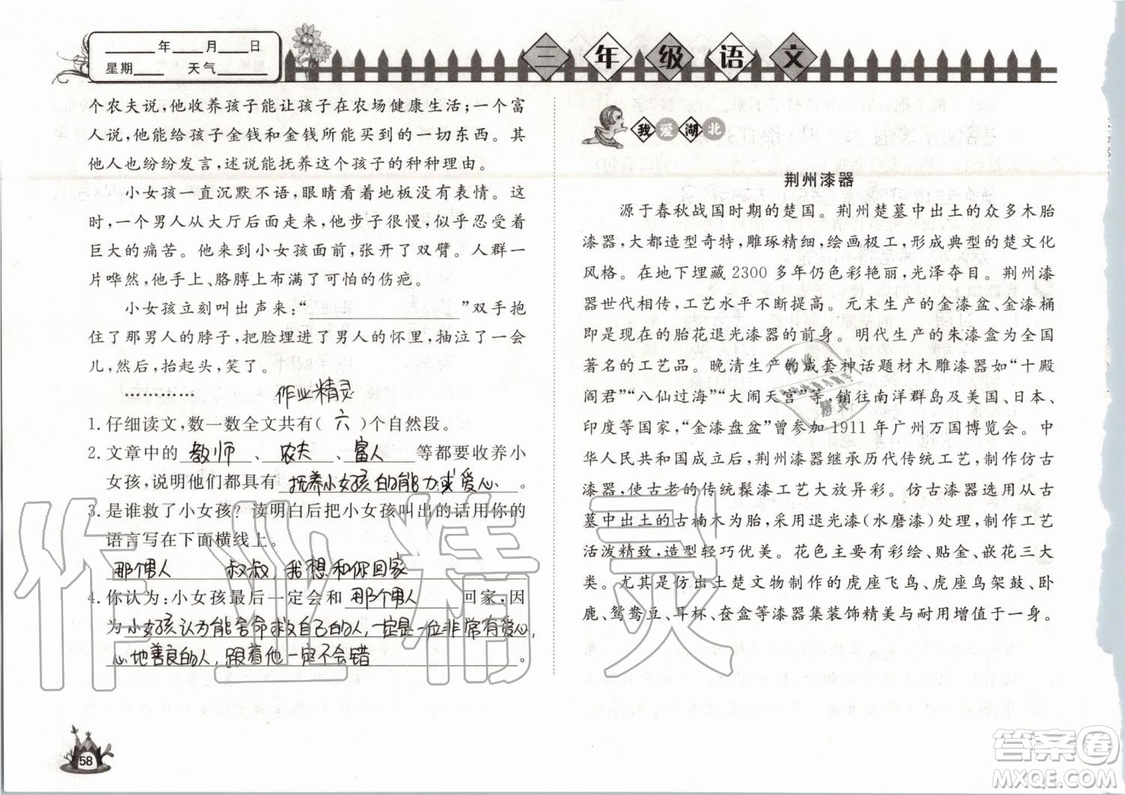 ____年____月____日
星期____ 天气____
三年级语文
个农夫说,他收养孩子能让孩子在农场健康生活;一个富
人说,他能给孩子金钱和金钱所能买到的一切东西。其
他人也纷纷发言,述说能抚养这个孩子的种种理由。
小女孩一直沉默不语,眼睛看着地板没有表情。这
时,一个男人从大厅后面走来,他步子很慢,似乎忍受着
巨大的痛苦。他来到小女孩面前,张开了双臂。人群一
片哗然,他手上、胳膊上布满了可怕的伤疤。
小女孩立刻叫出声来:“____________”双手抱
住了那男人的脖子,把脸埋进了男人的怀里,抽泣了一会
儿,然后,抬起头,笑了。
作业精灵
1. 仔细读文,数一数全文共有( 六 )个自然段。
2. 文章中的 教师 、 农夫 、 富人 等都要收养小
女孩,说明他们都具有 抚养小女孩的能力或爱心 。
3. 是谁救了小女孩?读明白后把小女孩叫出的话用你的
语言写在下面横线上。
那个男人 叔叔,我想和你回家
4. 你认为:小女孩最后一定会和 那个男人 回家,因
为 小女孩认为能舍命救自己的人,一定是一位非常有爱心,
心地善良的人,跟着他一定不会错 。
58
我爱湖北
荆州漆器
源于春秋战国时期的楚国。荆州楚墓中出土的众多木胎
漆器,大都造型奇特,雕琢精细,绘画极工,形成典型的楚文化
风格。在地下埋藏 2300 多年仍色彩艳丽,光泽夺目。荆州漆
器世代相传,工艺水平不断提高。元末生产的金漆盆、金漆桶
即是现在的胎花退光漆器的前身。明代生产的朱漆盒为全国
著名的工艺品。晚清生产的成套神话题材木雕漆器如“十殿
阎君”“八仙过海”“大闹天宫”等,销往南洋群岛及美国、日本、
印度等国家,“金漆盘盆”曾参加 1911 年广州万国博览会。中
华人民共和国成立后,荆州漆器继承历代传统工艺,制作仿古
漆器,使古老的传统髹漆工艺大放异彩。仿古漆器选料以古
墓中出土的古楠木为胎,采用退光漆(水磨漆)处理,制作工艺
活泼精致,造型轻巧优美。花色主要有彩绘、贴金、嵌花三大
类。尤其是仿出土楚文物制作的虎座飞鸟、虎座鸟架鼓、卧
鹿、鸳鸯豆、耳杯、套盒等漆器集装饰精美与耐用增值于一身。
作业精灵
答案卷
MXQE.COM